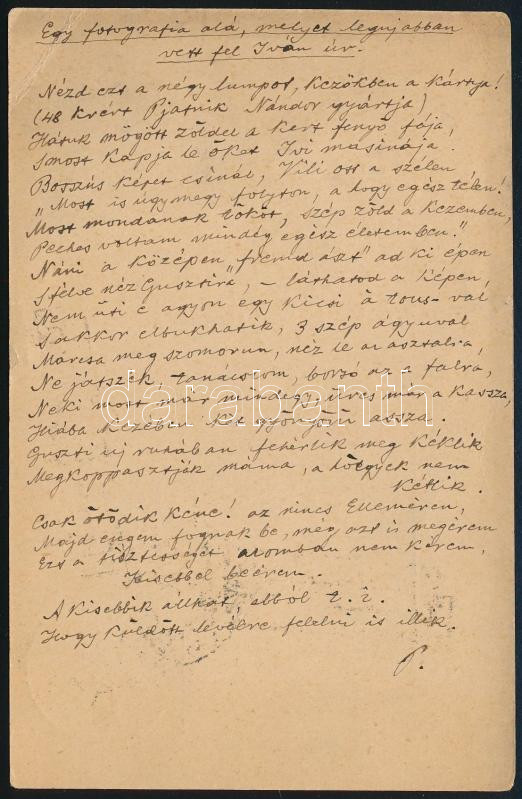 Egy fotografia alá, melyet legujabban
vett fel Iván úr.
Nézd ezt a négy lumpot, kezökben a kártya!
(48 krért Pjatnik Nándor gyártja)
Hátuk mögött zöldel a kert fenyő fája,
S most kapja le őket Ivi masinája.
Bosszús képet csinál, Vili ott a szélen
"Most is úgy megy folyton, a hogy egész télen!
Most mondanak tököt, szép zöld a kezemben,
Peches voltam mindég egész életemben!"
Náni a középen "fremd ászt" ad ki épen
S félve néz Gusztira, – láthatod a képen,
Nem üti e agyon egy kicsi à tous-val
S akkor elbukhatik, 3 szép ágyuval
Marcsa meg szomorun, néz le az asztalra
Ne játszék, tanácslom, borzó az a falra,
Neki most már mindegy, üres már a kassza,
Hiába kezében két gyönyörü ássza.
Guszti uj ruhában fehérlik meg kéklik
Megkoppasztják máma, a hölgyek nem
kétlik.
Csak ötödik kéne! az nincs Ellemérem,
Majd engem fognak be, még azt is megérem
Ezt a tisztességet azomban nem kérem,
Kisebbel beérem.
A kisebbik állhat, abból t. i.
Hogy küldött levélre felelni is illik.
P.
darabanth